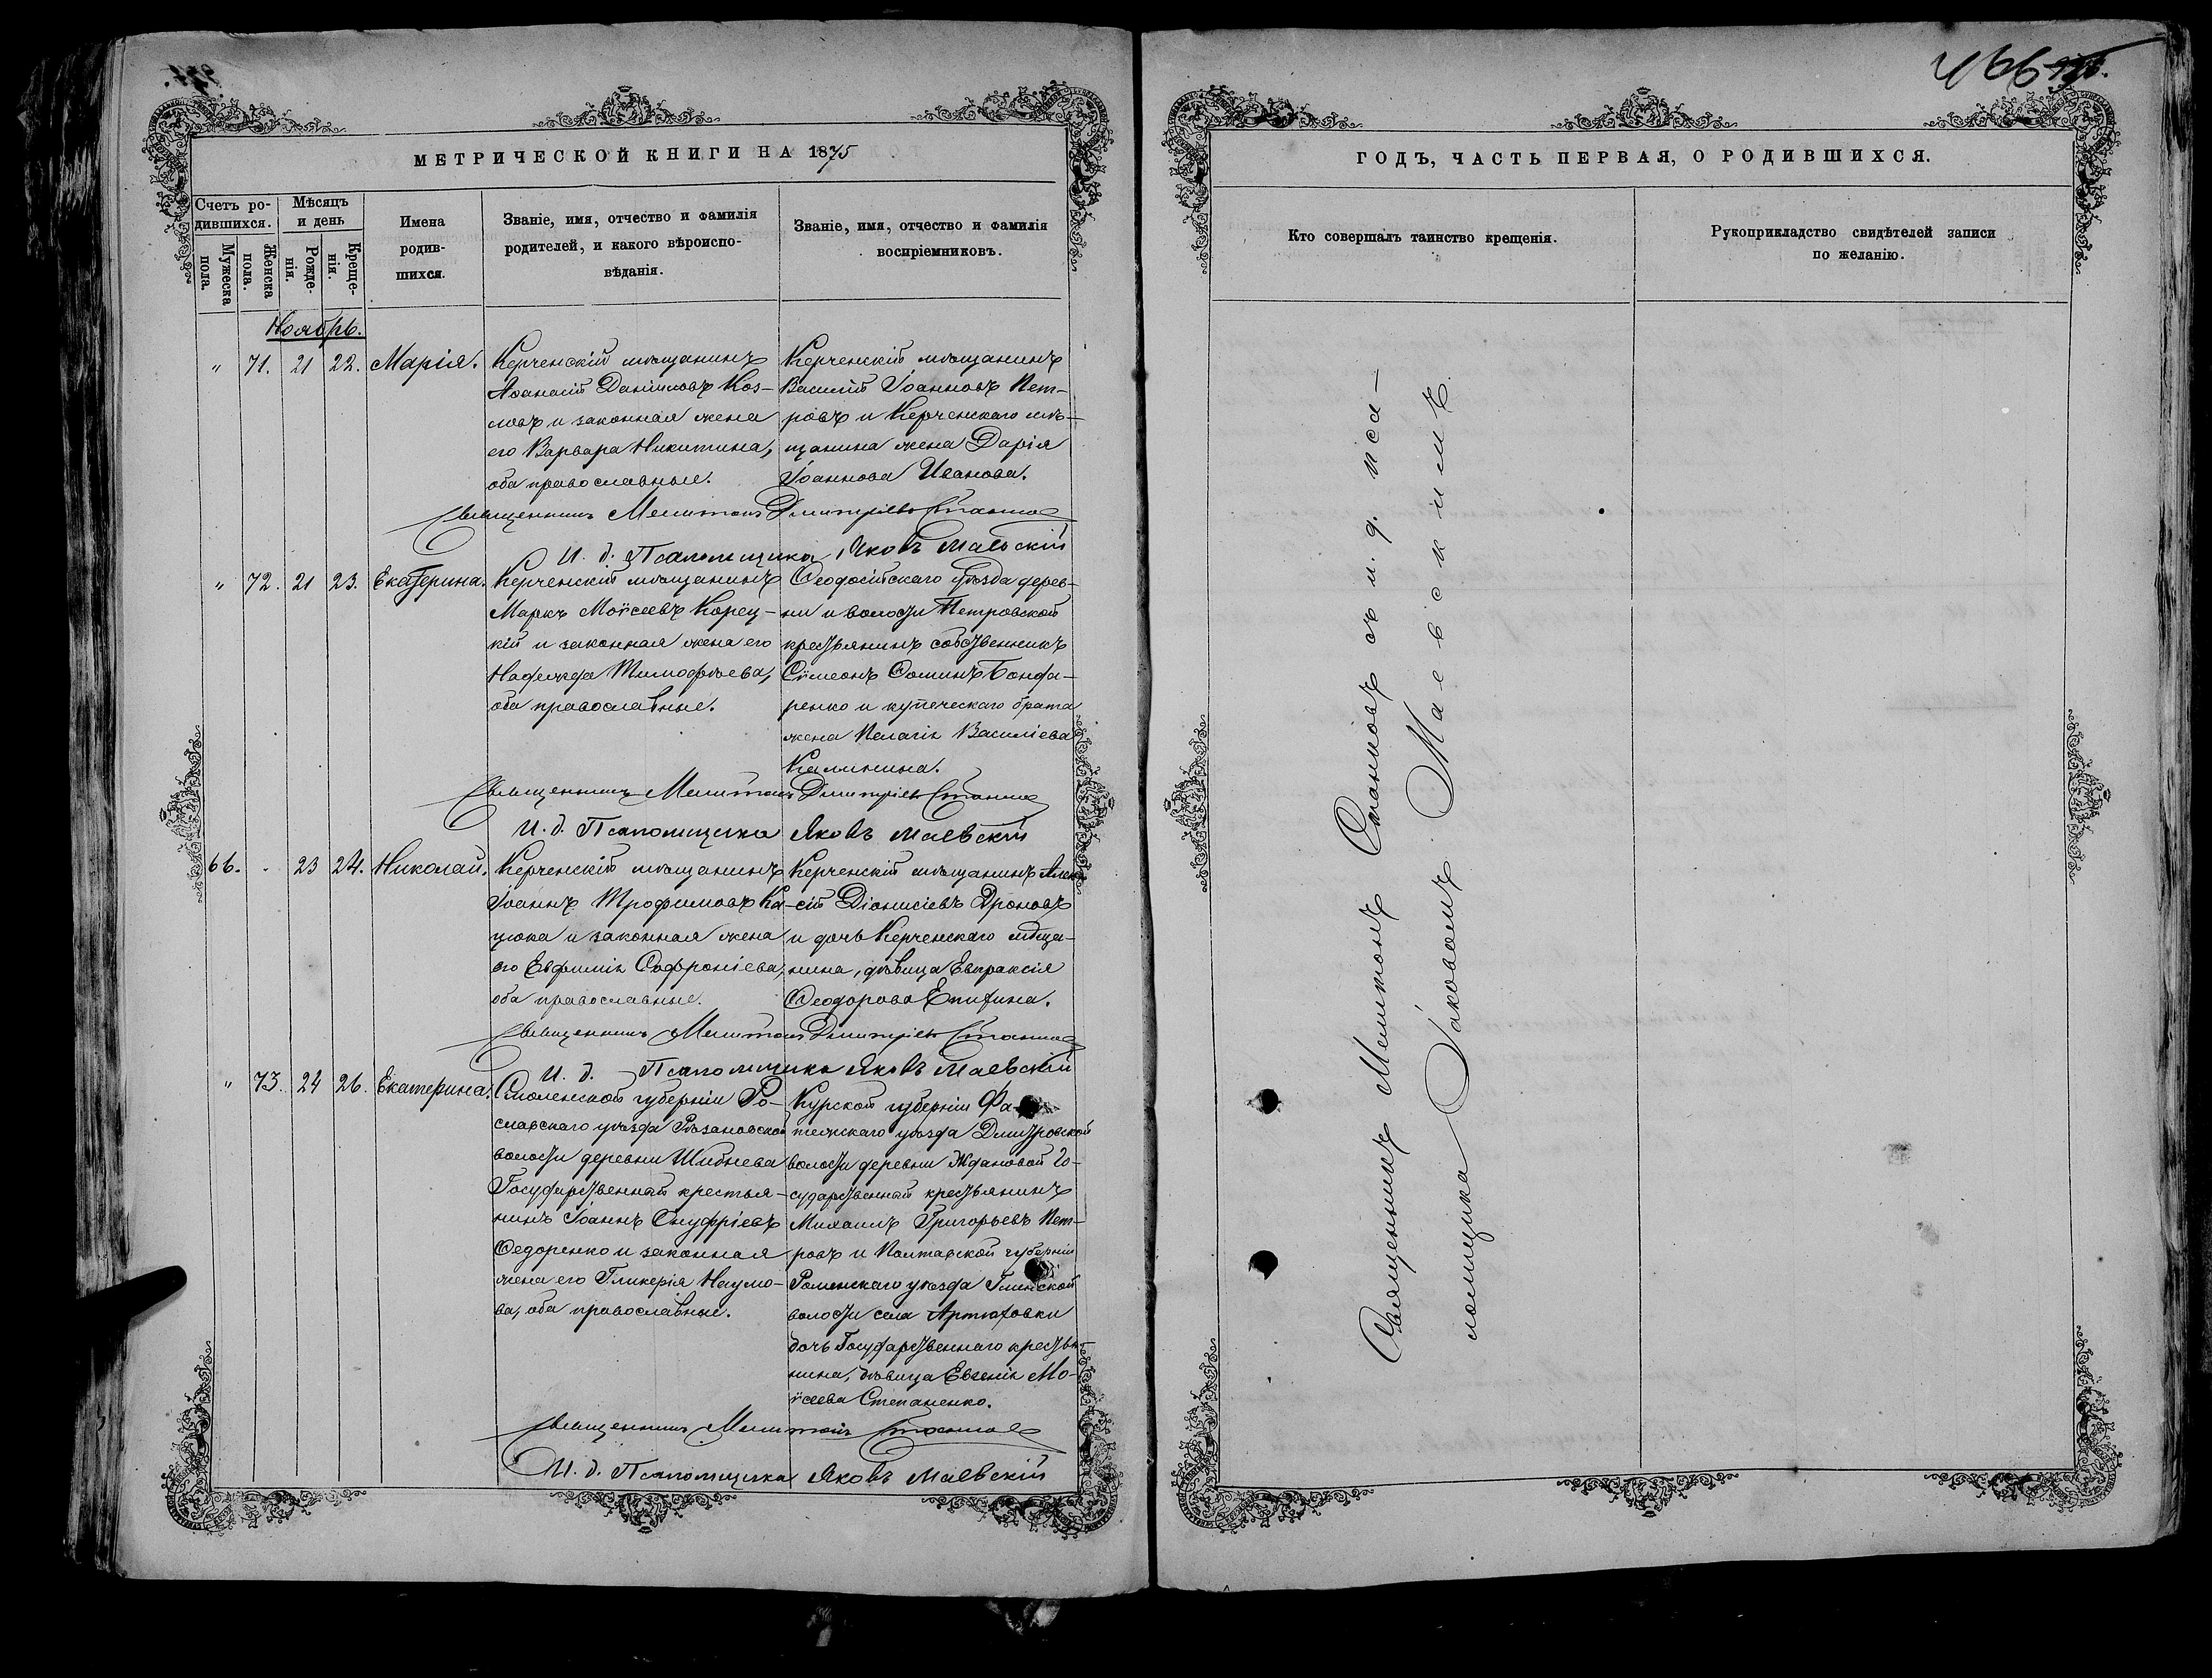 МЕТРИЧЕСКОЙ КНИГИ НА 1875
Счетъ ро-
дившихся.
Мужеска
пола.
Женска
пола.
Мѣсяцъ
и день
Рожде-
нія.
Креще-
нія.
Имена
родив-
шихся.
Званіе, имя, отчество и фамилія
родителей, и какого вѣроиспо-
вѣданія.
Званіе, имя, отчество и фамилія
воспріемниковъ.
Ноябрь.
" 71. 21 22. Марія.
Керченскій мѣщанинъ
Аѳанасій Даніиловъ Коз-
ловъ и законная жена
его Варвара Никитина,
оба православные.
Керченскій мѣщанинъ
Василій Іоанновъ Пет-
ровъ и Керченскаго мѣ-
щанина жена Дарія
Іоаннова Иванова.
Священникъ Мелитонъ Дмитріевъ Станиловъ
И. д. Псаломщика Яковъ Маевскій
" 72. 21 23. Екатерина.
Керченскій мѣщанинъ
Маркъ Моѵсеевъ Корец-
кій и законная жена его
Надежда Тимофѣева,
оба православные.
Ѳеодосійскаго уѣзда дерев-
ни и волости Петровской
крестьянинъ собственникъ
Сѵмеонъ Ѳоминъ Бонда-
ренко и купеческаго брата
жена Пелагія Василіева
Калинина.
Священникъ Мелитонъ Дмитріевъ Станиловъ
И. д. Псаломщика Яковъ Маевскій
66. " 23 24. Николай.
Керченскій мѣщанинъ
Іоаннъ Трофимовъ Ка-
цюка и законная жена
его Евфимія Софроніева,
оба православные.
Керченскій мѣщанинъ Алек-
сій Діонисіевъ Дроновъ
и дочь Керченскаго мѣща-
нина, дѣвица Евпраксія
Ѳеодорова Епихина.
Священникъ Мелитонъ Дмитріевъ Станиловъ
И. д. Псаломщика Яковъ Маевскій
" 73. 24 26. Екатерина.
Смоленской губерніи Ро-
славскаго уѣзда Рѣзановской
волости деревни Шибнева
Государственный крестья-
нинъ Іоаннъ Онуфріевъ
Ѳедоренко и законная
жена его Гликерія Наумо-
ва, оба православные.
Курской губерніи Фа-
тежскаго уѣзда Дмитровской
волости деревни Ждановой Го-
сударственный крестьянинъ
Михаилъ Григорьевъ Пет-
ровъ и Полтавской губерніи
Роменскаго уѣзда Глинской
волости села Артюховки
дочь Государственнаго крестья-
нина, дѣвица Евгенія Мо-
ѵсеева Степаненко.
Священникъ Мелитонъ Станиловъ
И. д. Псаломщика Яковъ Маевскій
466
ГОДЪ, ЧАСТЬ ПЕРВАЯ, О РОДИВШИХСЯ.
Кто совершалъ таинство крещенія.
Рукоприкладство свидѣтелей записи
по желанію.
Священникъ Мелитонъ Станиловъ съ и. д. пса-
ломщика Іаковомъ Маевскимъ.